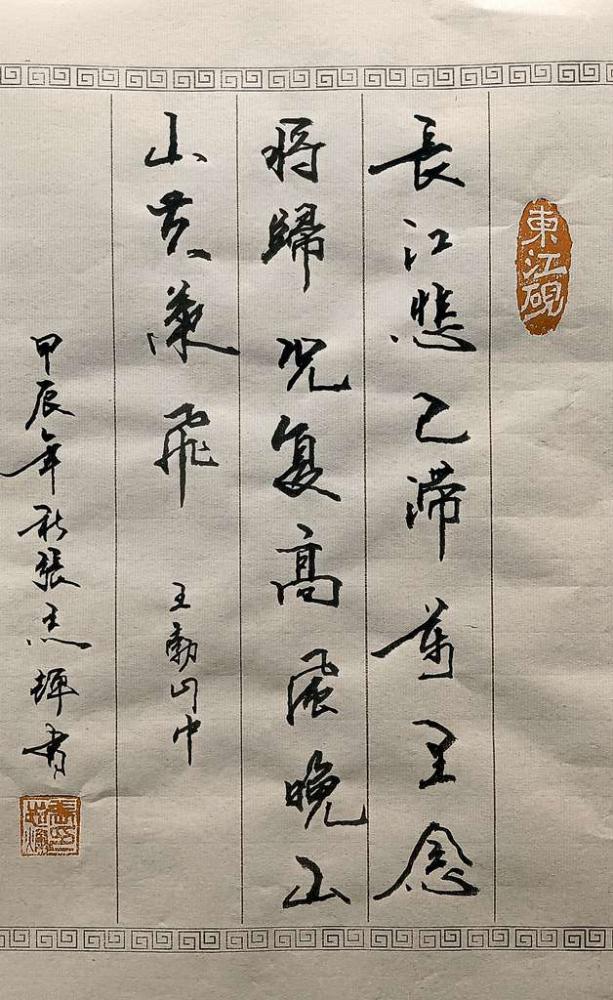 東江硯
長江悲已滞萬里念
将歸况复高風晚山
山黄葉飛 王勃山中
甲辰年秋張書